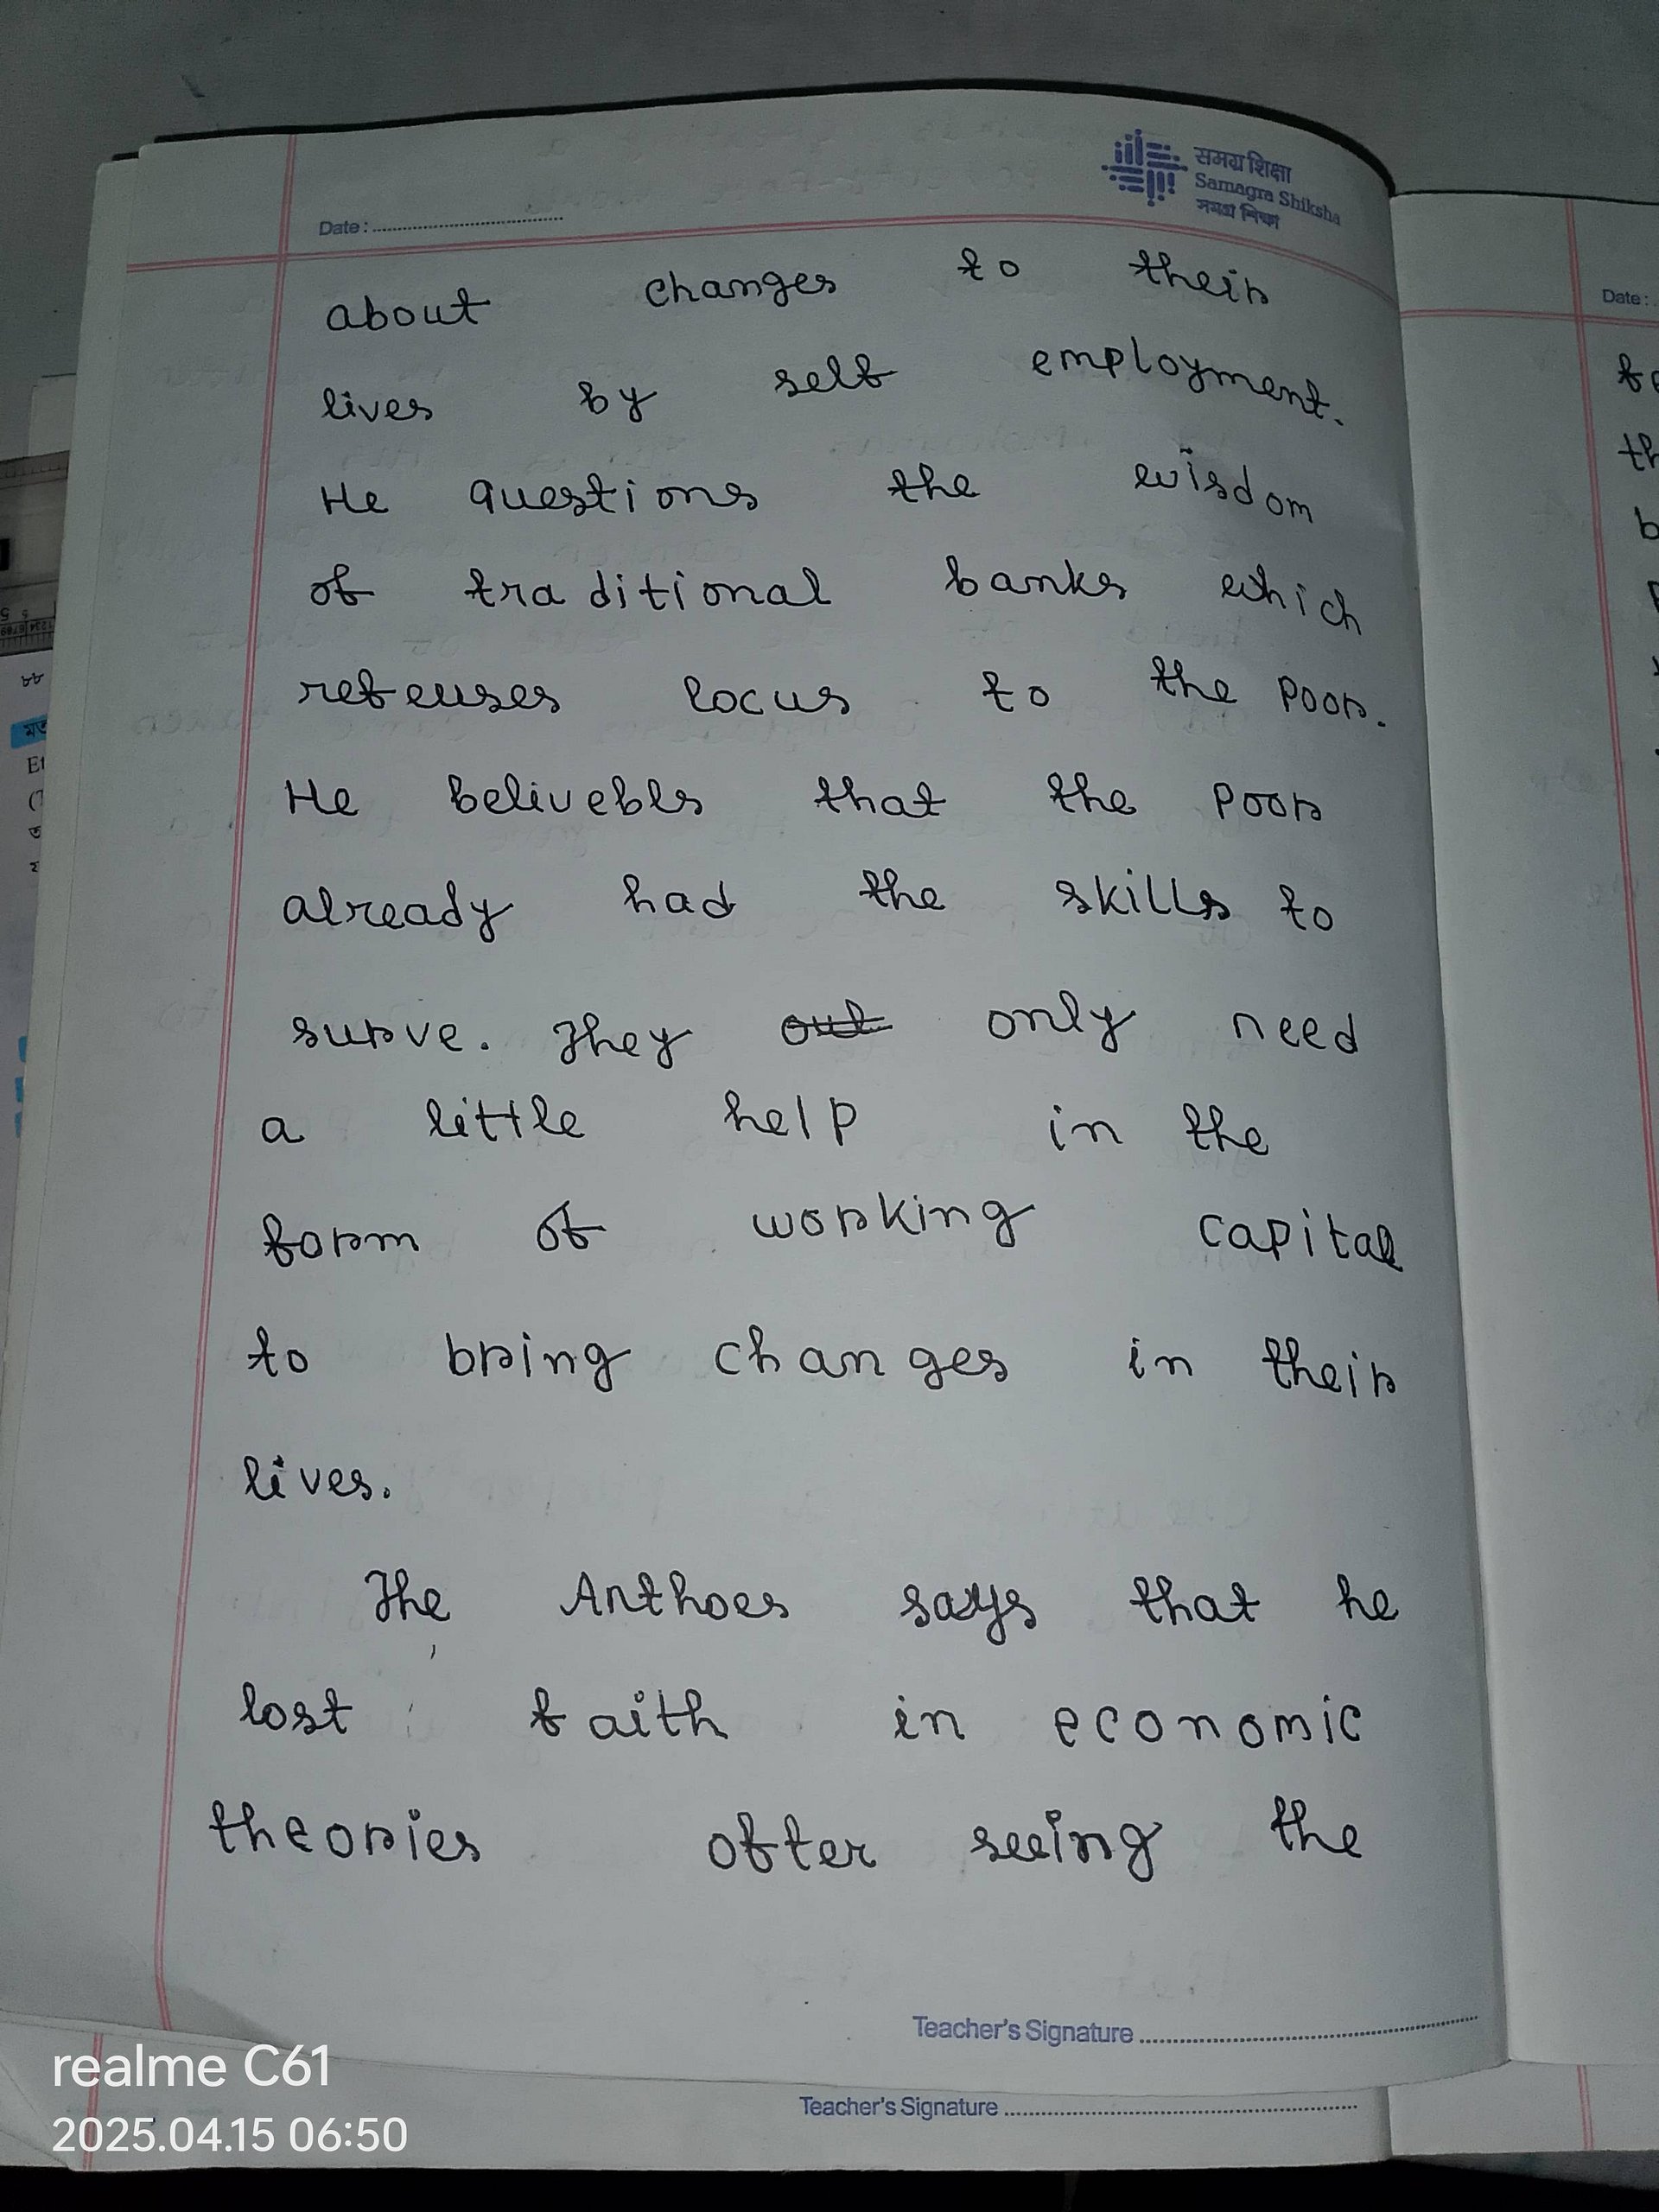 समग्र शिक्षा
Samagra Shiksha
Date:
about changes to their
lives by self employment.
He questions the wisdom
of traditional banks which
refeuses locus to the poor.
He belivebls that the poor
already had the skills to
surve. They only need
a little help in the
form of working capital
to bring changes in their
lives.
The Anthoes says that he
lost faith in economic
theories ofter seeing the
Teacher's Signature
Teacher's Signature
Date:
realme C61
2025.04.15 06:50